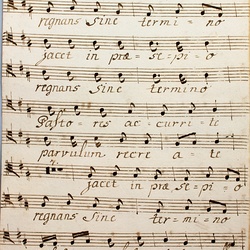 regnans sine termi = no
jacet in præ = se = pi = o
regnans sine termino
Pasto = res ac = curri = te
parvulum recre a = te
jacet in præ se = pi = o
regnans sine ter = mi = no